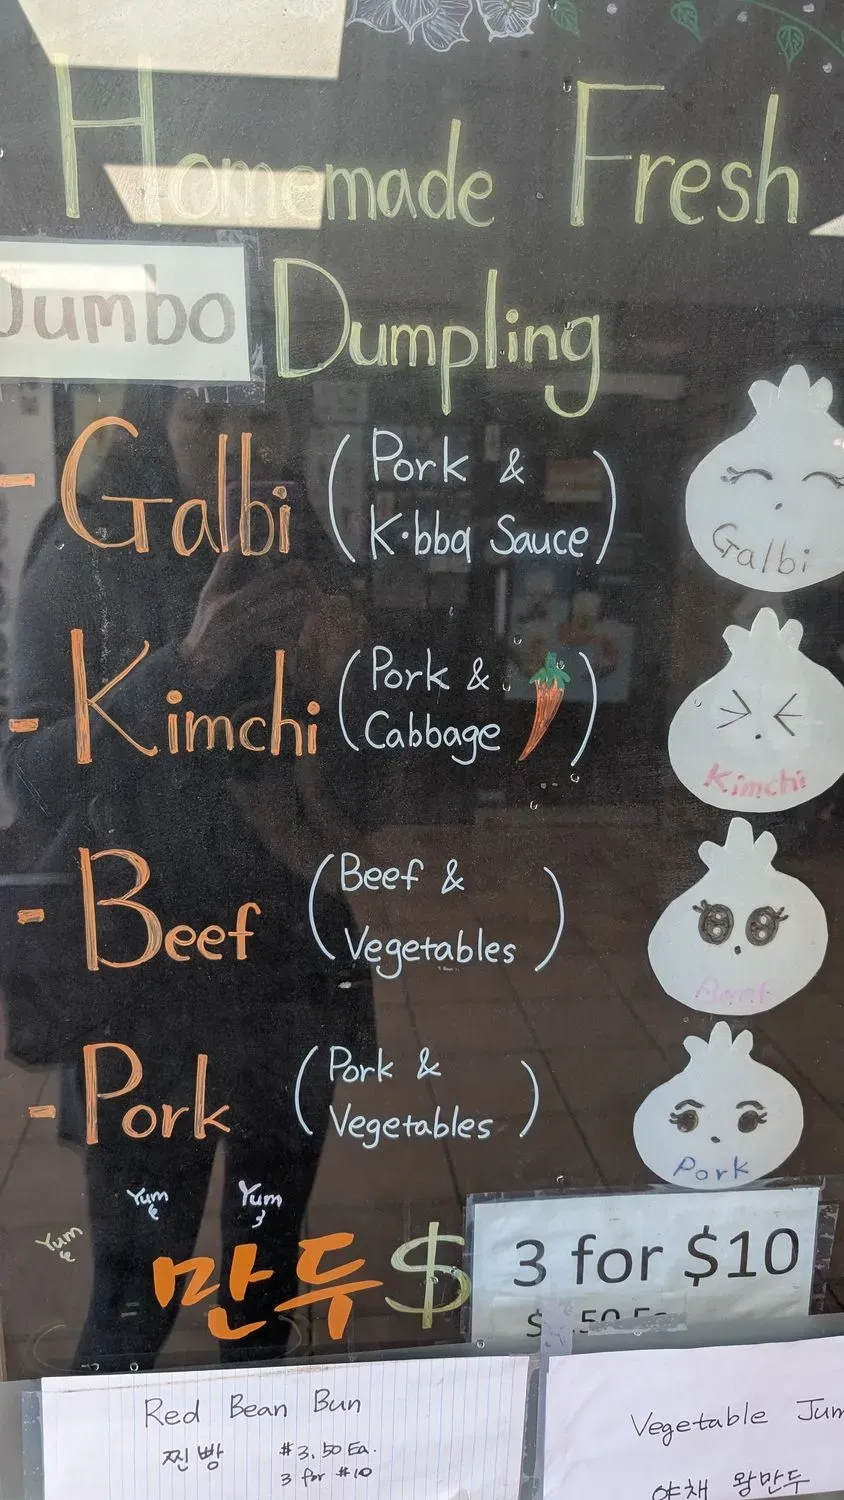 Homemade Fresh
Jumbo Dumpling
- Galbi (Pork & K·bbq Sauce)
Galbi
- Kimchi (Pork & Cabbage)
Kimchi
- Beef (Beef & Vegetables)
Beef
- Pork (Pork & Vegetables)
Pork
Yum Yum Yum
만두 $ 3 for $10
Red Bean Bun
찐빵 $3.50 Ea.
3 for $10
Vegetable
야채 왕만두